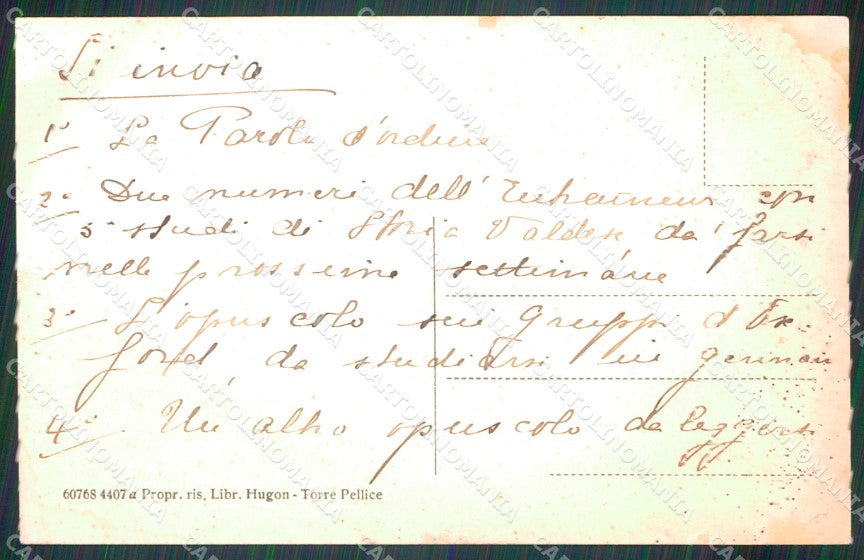 Si invia
1° La Parola d'ordine
2° Due numeri dell'Entraineur
5 studi di Storia Valdese da farsi
nelle prossime settimane
3° L'opuscolo sui Gruppi d'Ox-
ford, da studiarsi in
4° Un altro opuscolo da leggersi
60768 4407 a Propr. ris. Libr. Hugon - Torre Pellice
CARTOLINOMANIA